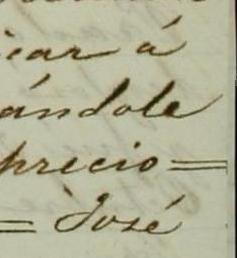 icar á
ándole
precio=
= José